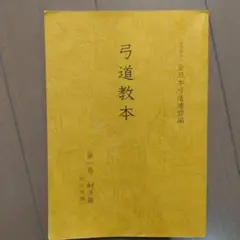 全日本弓道連盟編
弓道教本
第一巻 射法篇